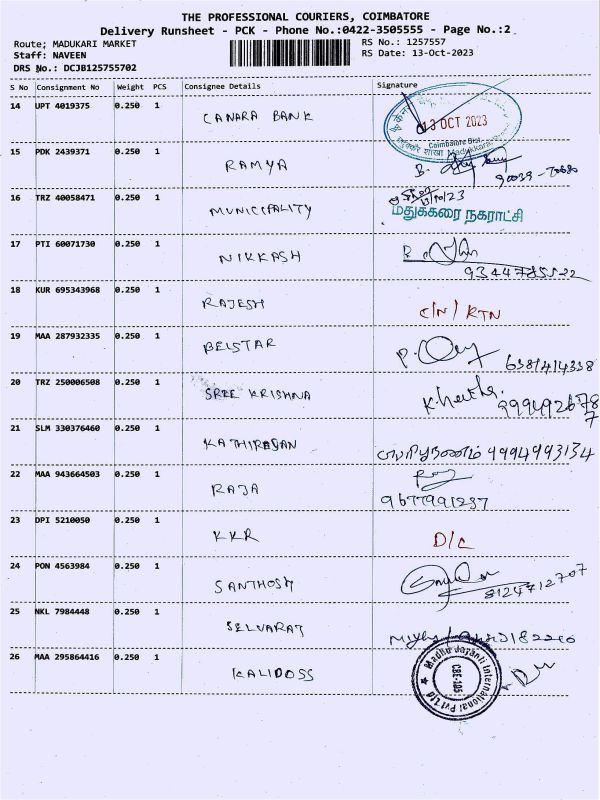 THE PROFESSIONAL COURIERS, COIMBATORE
Delivery Runsheet - PCK - Phone No.:0422-3505555 - Page No.:2
Route; MADUKARI MARKET
Staff: NAVEEN
DRS No.: DCJB125755702
RS No.: 1257557
RS Date: 13-Oct-2023
S No Consignment No Weight PCS Consignee Details Signature
14 UPT 4019375 0.250 1 CANARA BANK
13 OCT 2023
Coimbatore Dist
15 PDK 2439371 0.250 1 RAMYA
16 TRZ 40058471 0.250 1 MUNICIPALITY
மதுக்கரை நகராட்சி
17 PTI 60071730 0.250 1 NIKKASH
18 KUR 695343968 0.250 1 RAJESH C/N / RTN
19 MAA 287932335 0.250 1 BELSTAR 6381414338
20 TRZ 250006508 0.250 1 SREE KRISHNA
21 SLM 330376460 0.250 1 KATHIRESAN 9994993134
22 MAA 943664503 0.250 1 RAJA
9677991237
23 DPI 5210050 0.250 1 KKR D/C
24 PON 4563984 0.250 1 SANTHOSH 8124712707
25 NKL 7984448 0.250 1 SELVARAJ
26 MAA 295864416 0.250 1 KALIDOSS
Madhu Jayanti International Pvt Ltd
CBE-105